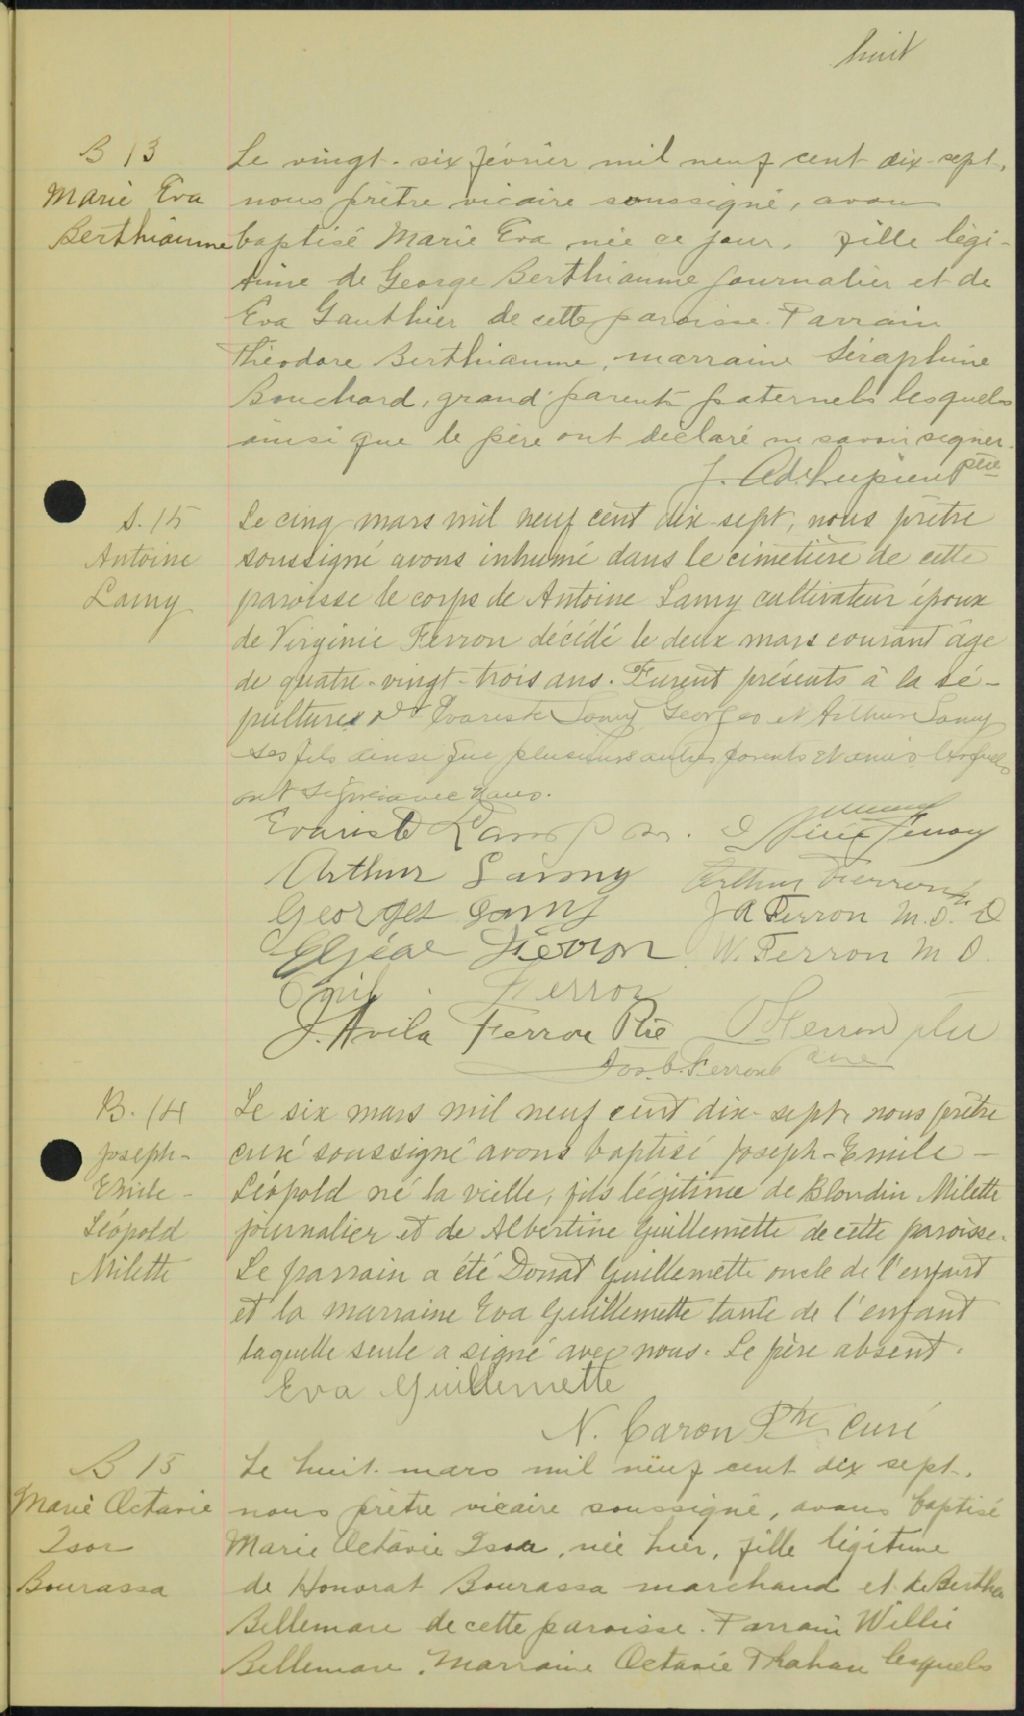 huit
B 13
Marie Eva
Berthiaume
Le vingt-six février mil neuf cent dix-sept,
nous prêtre vicaire soussigné, avons
baptisé Marie Eva née ce jour, fille légi-
time de George Berthiaume journalier et de
Eva Gauthier de cette paroisse. Parrain
Théodore Berthiaume, marraine Séraphine
Bouchard, grand-parents paternels lesquels
ainsi que le père ont déclaré ne savoir signer.
J. Ad. Lupien ptre
S. 15
Antoine
Lamy
Le cinq mars mil neuf cent dix-sept, nous prêtre
soussigné avons inhumé dans le cimetière de cette
paroisse le corps de Antoine Lamy cultivateur époux
de Virginie Ferron décédé le deux mars courant âgé
de quatre-vingt-trois ans. Furent présents à la sé-
pultures Evariste Lamy Georges et Arthur Lamy
ses fils ainsi que plusieurs autres parents et amis lesquels
ont signé avec nous.
Evariste Lamy
Ferron
Arthur Lamy
Arthur Ferron
Georges Lamy
J A Ferron M.D.
Elzéar Ferron
W. Ferron M D.
Ferron
J. Avila Ferron Ptre
Ferron ptre
Jos. Ferron
B. 14
Joseph-
Emile-
Léopold
Milette
Le six mars mil neuf cent dix-sept, nous prêtre
curé soussigné avons baptisé Joseph-Emile-
Léopold né la vielle, fils légitime de Blondin Milette
journalier et de Albertine Guillemette de cette paroisse.
Le parrain a été Donat Guillemette oncle de l'enfant
et la marraine Eva Guillemette tante de l'enfant
laquelle seule a signé avec nous. Le père absent.
Eva Guillemette
N. Caron Ptre Curé
B 15
Marie Octavie
Isor
Bourassa
Le huit mars mil neuf cent dix sept,
nous prêtre vicaire soussigné, avons baptisé
Marie Octavie Isor, née hier, fille légitime
de Honorat Bourassa marchand et de Bertha
Bellemare de cette paroisse. Parrain Willie
Bellemare, Marraine Octavie Thahan lesquels